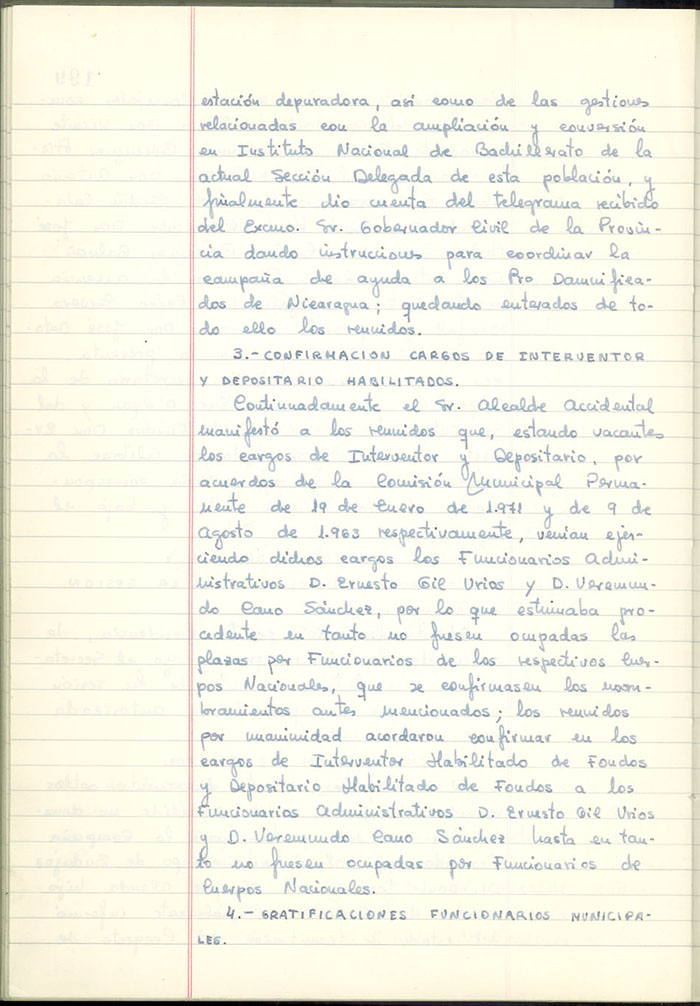 estación depuradora, así como de las gestiones
relacionadas con la ampliación y conversión
en Instituto Nacional de Bachillerato de la
actual Sección Delegada de esta población, y
finalmente dio cuenta del telegrama recibido
del Excmo. Sr. Gobernador Civil de la Provin-
cia dando instrucciones para coordinar la
campaña de ayuda a los Pro Damnifica-
dos de Nicaragua; quedando enterados de to-
do ello los reunidos.
3.- CONFIRMACION CARGOS DE INTERVENTOR
Y DEPOSITARIO HABILITADOS.
Continuadamente el Sr. Alcalde Accidental
manifestó a los reunidos que, estando vacantes
los cargos de Interventor y Depositario, por
acuerdos de la Comisión Municipal Perma-
nente de 19 de Enero de 1.971 y de 9 de
Agosto de 1.963 respectivamente, venían ejer-
ciendo dichos cargos los Funcionarios Admi-
nistrativos D. Ernesto Gil Urios y D. Veremun-
do Cano Sánchez, por lo que estimaba pro-
cedente en tanto no fuesen ocupadas las
plazas por Funcionarios de los respectivos Cuer-
pos Nacionales, que se confirmasen los nom-
bramientos antes mencionados; los reunidos
por unanimidad acordaron confirmar en los
cargos de Interventor Habilitado de Fondos
y Depositario Habilitado de Fondos a los
Funcionarios Administrativos D. Ernesto Gil Urios
y D. Veremundo Cano Sánchez hasta en tan-
to no fuesen ocupadas por Funcionarios de
Cuerpos Nacionales.
4.- GRATIFICACIONES FUNCIONARIOS MUNICIPA-
LES.